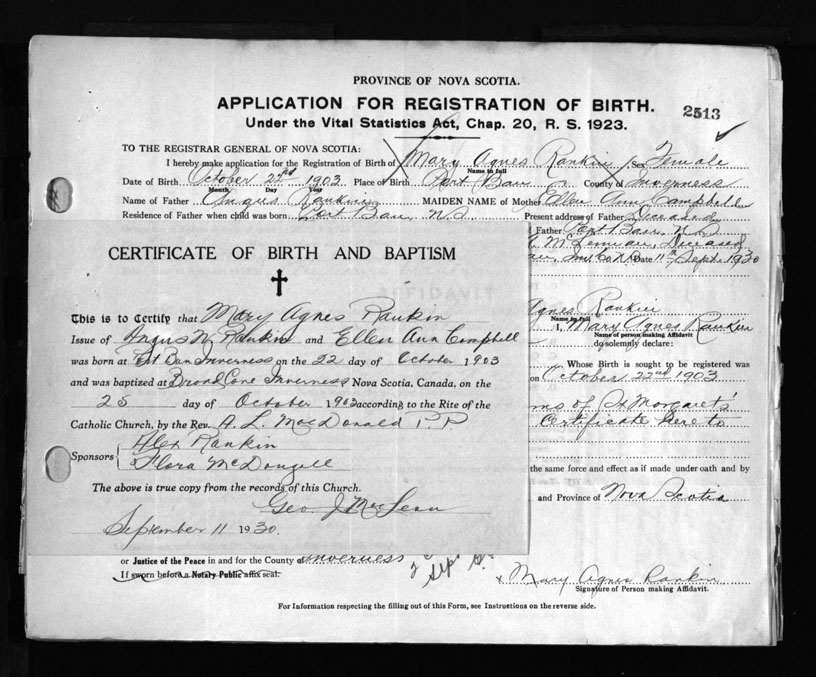 PROVINCE OF NOVA SCOTIA.
APPLICATION FOR REGISTRATION OF BIRTH.
2513
Under the Vital Statistics Act, Chap. 20, R. S. 1923.
TO THE REGISTRAR GENERAL OF NOVA SCOTIA:
I hereby make application for the Registration of Birth of Mary Agnes Rankin Sex Female
Name in full
Date of Birth October 22nd 1903 Place of Birth Port Ban County of Inverness
Month Day Year
Name of Father Angus Rankin MAIDEN NAME of Mother Ellen Ann Campbell
Residence of Father when child was born Port Ban, N.S. Present address of Father Deceased
Father Port Ban, N.S.
Deceased
Date 11th Sept. 1930
CERTIFICATE OF BIRTH AND BAPTISM
This is to Certify that Mary Agnes Rankin
Issue of Angus N. Rankin and Ellen Ann Campbell
was born at Port Ban Inverness on the 22 day of October 1903
and was baptized at Broad Cove Inverness Nova Scotia, Canada, on the
25 day of October 1903 according to the Rite of the
Catholic Church, by the Rev. A. L. MacDonald P.P.
Sponsors Alex Rankin
Flora McDougall
The above is true copy from the records of this Church.
Geo. J. MacLean
September 11 1930.
AFFIDAVIT
Agnes Rankin
Name in full
I, Mary Agnes Rankin
Name of person making Affidavit
do solemnly declare:
Whose Birth is sought to be registered was
on October 22nd 1903
of St Margaret's
Certificate hereto
the same force and effect as if made under oath and by
and Province of Nova Scotia
or Justice of the Peace in and for the County of Inverness
If sworn before a Notary Public affix seal.
x Mary Agnes Rankin
Signature of Person making Affidavit.
For Information respecting the filling out of this Form, see Instructions on the reverse side.